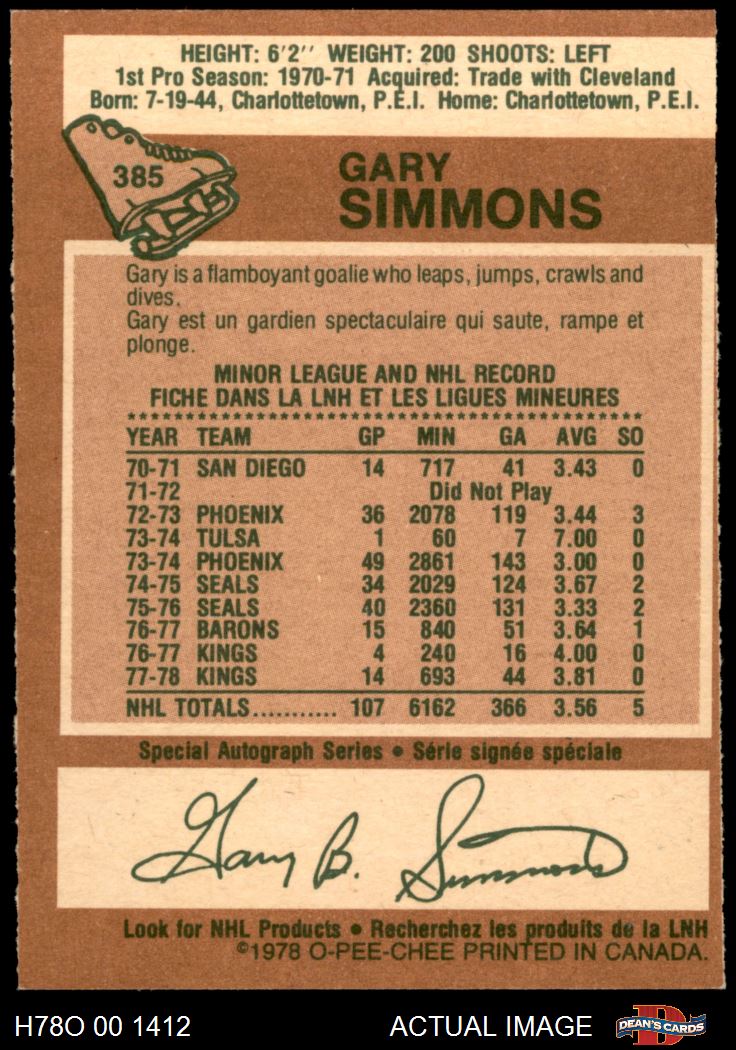 HEIGHT: 6'2'' WEIGHT: 200 SHOOTS: LEFT
1st Pro Season: 1970-71 Acquired: Trade with Cleveland
Born: 7-19-44, Charlottetown, P.E.I. Home: Charlottetown, P.E.I.
385
GARY
SIMMONS
Gary is a flamboyant goalie who leaps, jumps, crawls and
dives.
Gary est un gardien spectaculaire qui saute, rampe et
plonge.
MINOR LEAGUE AND NHL RECORD
FICHE DANS LA LNH ET LES LIGUES MINEURES
YEAR TEAM GP MIN GA AVG SO
70-71 SAN DIEGO 14 717 41 3.43 0
71-72 Did Not Play
72-73 PHOENIX 36 2078 119 3.44 3
73-74 TULSA 1 60 7 7.00 0
73-74 PHOENIX 49 2861 143 3.00 0
74-75 SEALS 34 2029 124 3.67 2
75-76 SEALS 40 2360 131 3.33 2
76-77 BARONS 15 840 51 3.64 1
76-77 KINGS 4 240 16 4.00 0
77-78 KINGS 14 693 44 3.81 0
NHL TOTALS........... 107 6162 366 3.56 5
Special Autograph Series • Série signée spéciale
Gary B. Simmons
Look for NHL Products • Recherchez les produits de la LNH
©1978 O-PEE-CHEE PRINTED IN CANADA.
H78O 00 1412 ACTUAL IMAGE D DEAN'S CARDS